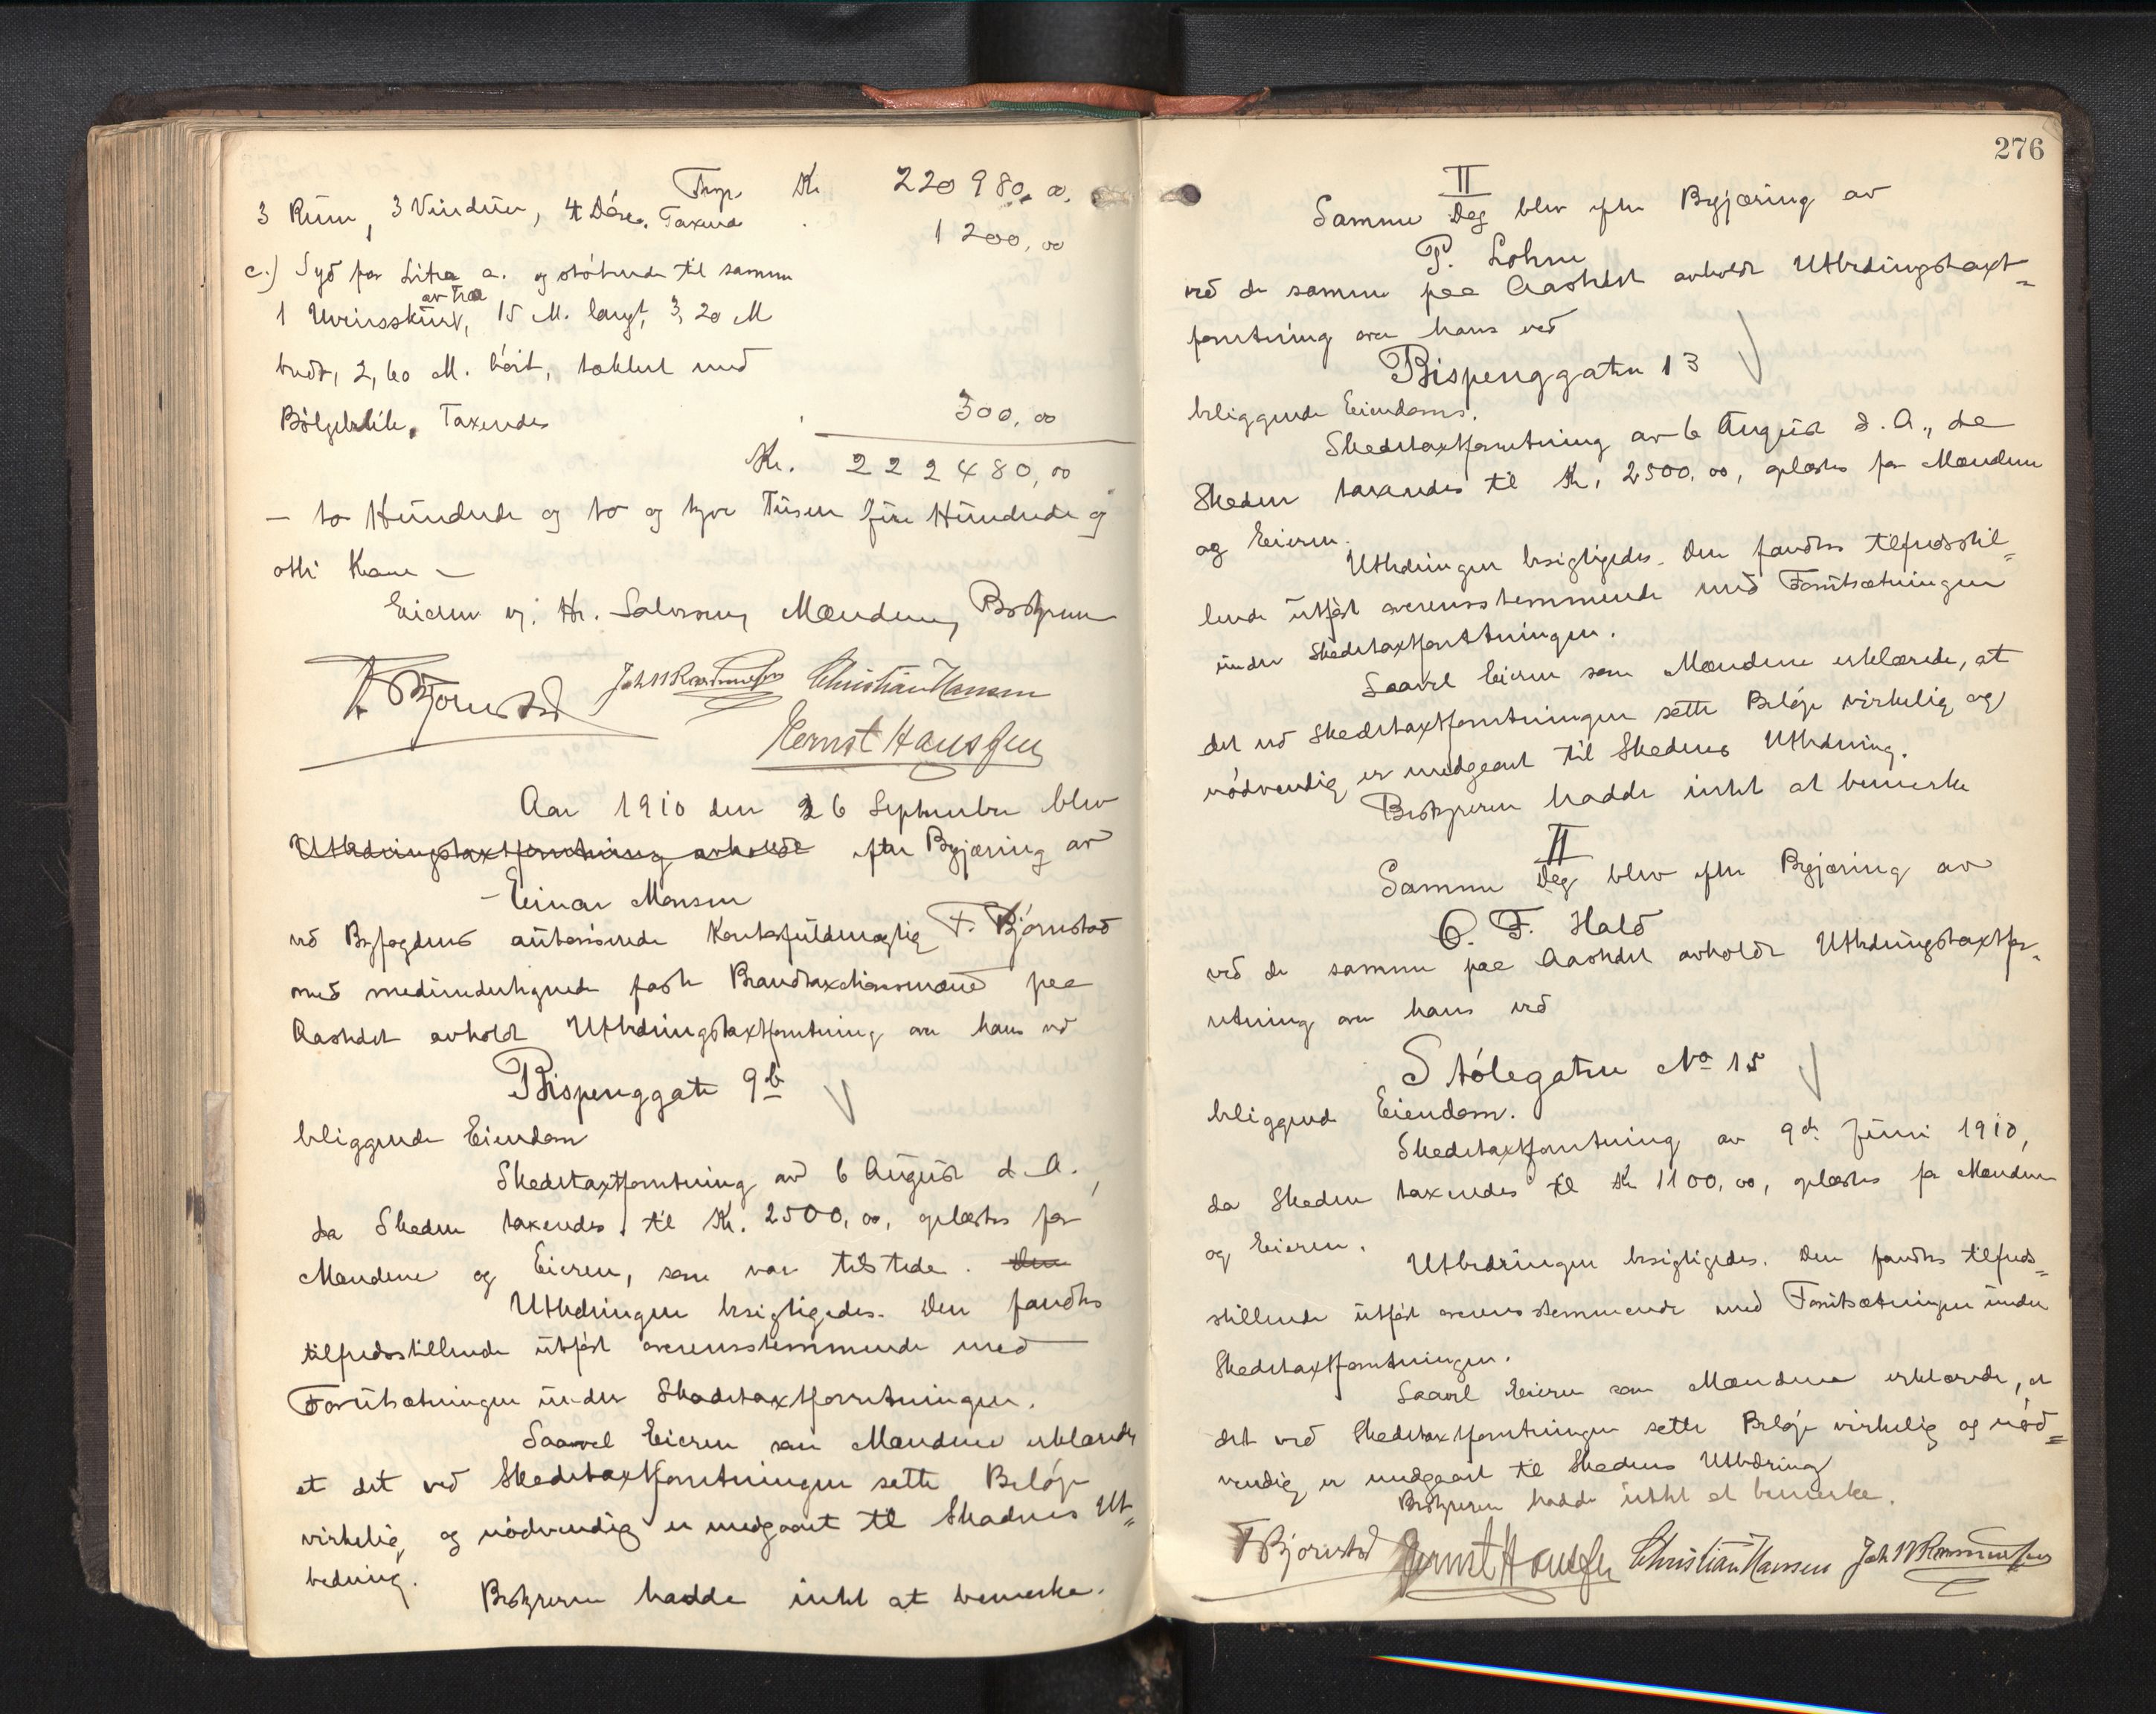 Trsp. Kr 220980,00.
3 Rum, 3 Vinduer, 4 Döre. Taxered 1200,00
c.) Syd for Litra a. og stötende til samme
1 Uveirsskur av Træ, 15 M. langt, 3,20 M
bredt, 2,60 M. höit, tækket med
Bölgeblik. Taxeredes 300,00
Kr. 222480,00
— to Hundrede og to og tyve Tusen fire Hundrede og
otti Kroner —
Eieren ej. Hr. Salvesen, Mændene, Bestyreren
F. Bjornstad Joh N Rasmussen Christian Hansen
Hernst Hansen
Aar 1910 den 26 September blev
Utbedringstaxtforretning avholdt efter Begjæring av
Einar Monsen
ved Byfogdens autoriserede Kontorfuldmægtig F. Björnstad
med medundertegnede faste Brandtaxationsmænd paa
Aastedet avholdt Utbedringstaxtforretning over hans ved
Bispenggate 9b
beliggende Eiendom
Skadetaxtforretning av 6 August d. A.,
da Skaden taxeredes til Kr. 2500,00, oplæstes for
Mændene og Eieren, som var tilstede. Den
Utbedringen besigtigedes. Den fandtes
tilfredsstillende utfört overensstemmende med
Forutsætningen under Skadetaxtforretningen.
Saavel Eieren som Mændene erklærede
at det ved Skadetaxtforretningen satte Belöp
virkelig og nödvendig er medgaaet til Skadens Ut=
bedring.
Bestyreren hadde intet at bemerke.
276
II
Samme Dag blev efter Begjæring av
P. Lohne
ved de samme paa Aastedet avholdt Utbedringstaxt=
forretning over hans ved
Bispenggaten 13
beliggende Eiendoms.
Skadetaxtforretning av 6 August d. A., da
Skaden taxeredes til Kr. 2500,00, oplæstes for Mændene
og Eieren.
Utbedringen besigtigedes. Den fandtes tilfredsstil=
lende utfört overensstemmende med Forutsætningen
under Skadetaxtforretningen.
Saavel Eieren som Mændene erklærede, at
det ved Skadetaxtforretningen satte Belöp virkelig og
nödvendig er medgaaet til Skadens Utbedring.
Bestyreren hadde intet at bemerke
II
Samme Dag blev efter Begjæring av
O. F. Hald
ved de samme paa Aastedet avholdt Utbedringstaxtfor=
retning over hans ved
Stölegaten No 15
beliggende Eiendom.
Skadetaxtforretning av 9de Juni 1910,
da Skaden taxeredes til Kr 1100,00, oplæstes for Mændene
og Eieren.
Utbedringen besigtigedes. Den fandtes tilfreds=
stillende utfört overensstemmende med Forutsætningen under
Skadetaxtforretningen.
Saavel Eieren som Mændene erklærede, at
det ved Skadetaxtforretningen satte Belöp virkelig og nöd=
vendig er medgaaet til Skadens Utbedring
Bestyreren hadde intet at bemerke.
F Bjornstad Hernst Hansen Christian Hansen Joh N Rasmussen